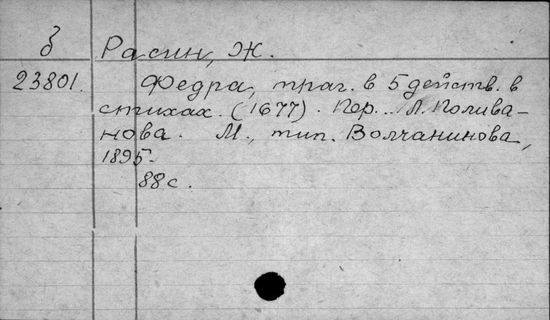 δ Расин, Ж.
23801. Федра, траг. в 5 действ. в
стихах. (1677). Пер. Л. Полива-
нова. М., тип. Волчанинова,
1895.
88 с.